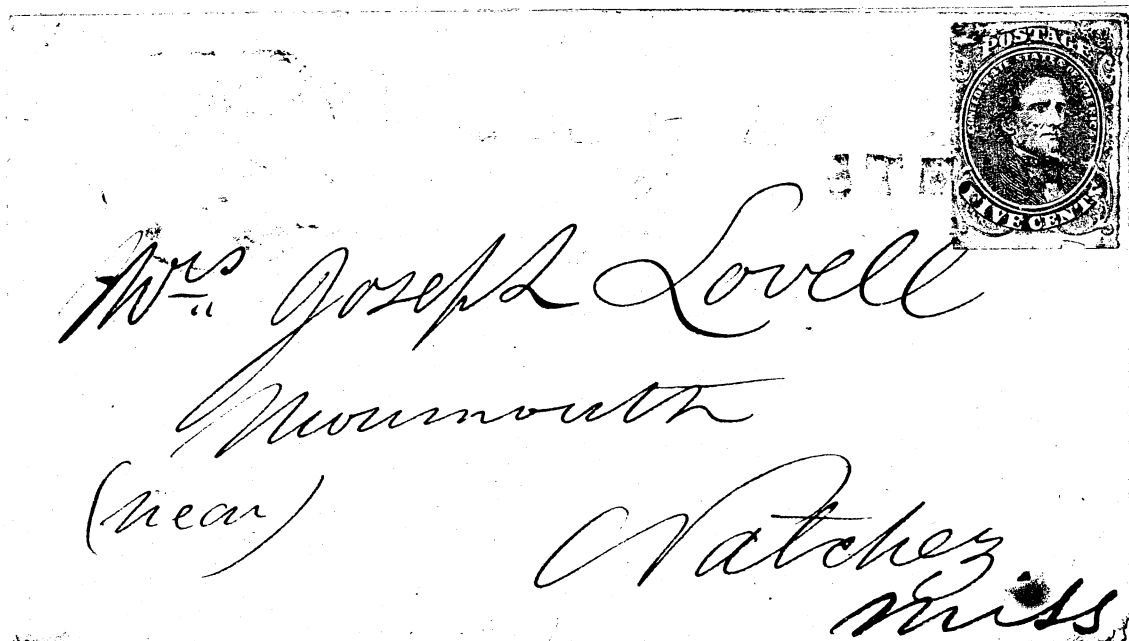 POSTAGE
CONFEDERATE STATES OF AMERICA
FIVE CENTS
Mrs Joseph Lovell
Monmouth
(near)
Natchez
Miss